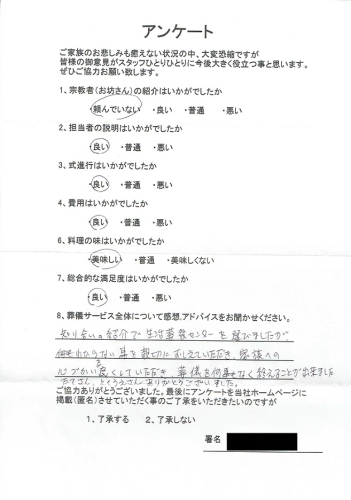 アンケート
ご家族のお悲しみも癒えない状況の中、大変恐縮ですが
皆様の御意見がスタッフひとりひとりに今後大きく役立つ事と思います。
ぜひご協力お願い致します。
1、宗教者（お坊さん）の紹介はいかがでしたか
・頼んでいない ・良い ・普通 ・悪い
2、担当者の説明はいかがでしたか
・良い ・普通 ・悪い
3、式進行はいかがでしたか
・良い ・普通 ・悪い
4、費用はいかがでしたか
・良い ・普通 ・悪い
6、料理の味はいかがでしたか
・美味しい ・普通 ・美味しくない
7、総合的な満足度はいかがでしたか
・良い ・普通 ・悪い
8、葬儀サービス全体について感想、アドバイスをお聞かせください。
知り合いの紹介で生活葬祭センターを選びましたが、
何もわからない事を親切におしえていただき、家族への
心づかい良くしていただき、葬儀を何事もなく終えることが出来ました
ありがとうございました。
ご協力ありがとうございました。最後にアンケートを当社ホームページに
掲載（匿名）させていただく事のご了承をいただきたいのですが
1、了承する 2、了承しない
署名